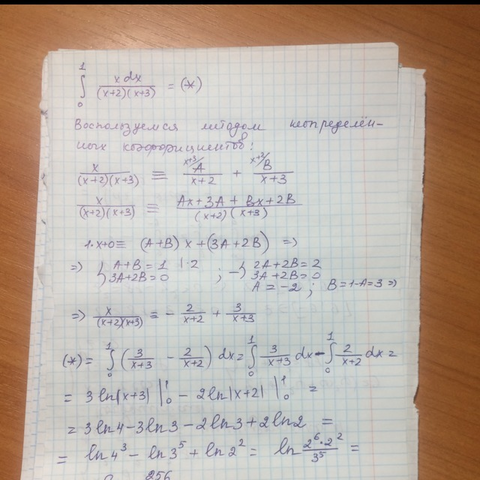 ∫₀¹ x dx / (x+2)(x+3) = (*)
Воспользуемся методом неопределён-
ных коэффициентов:
x / (x+2)(x+3) ≡ ˣ⁺³⁄ A / x+2 + ˣ⁺²⁄ B / x+3
x / (x+2)(x+3) ≡ Ax+3A+Bx+2B / (x+2)(x+3)
1·x+0 ≡ (A+B)x + (3A+2B) =>
=> { A+B=1 |·2 3A+2B=0 ; -{ 2A+2B=2 3A+2B=0
A=-2; B=1-A=3 =>
=> x / (x+2)(x+3) = - 2 / x+2 + 3 / x+3
(*) = ∫₀¹ (3 / x+3 - 2 / x+2) dx = ∫₀¹ 3 / x+3 dx - ∫₀¹ 2 / x+2 dx =
= 3 ln|x+3| |₀¹ - 2 ln|x+2| |₀¹ =
= 3 ln4 - 3 ln3 - 2 ln3 + 2 ln2 =
= ln4³ - ln3⁵ + ln2² = ln 2⁶·2² / 3⁵ =
256